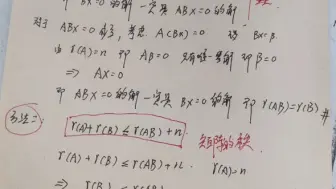 即 BX=0 的解 一定是 ABX=0 的解
对于 ABX=0 , 考虑 A(BX)=0 设 BX=β
由 r(A)=n 即 Aβ=0 只有唯一零解 即 β=0
⇒ AX=0
即 ABX=0 的解一定是 BX=0 的解 即 r(AB)=r(B) #
方法二:
r(A)+r(B)≤r(AB)+n
矩阵的秩
r(A)+r(B)≤r(AB)+n. r(A)=n
⇒ r(B)≤r(AB)